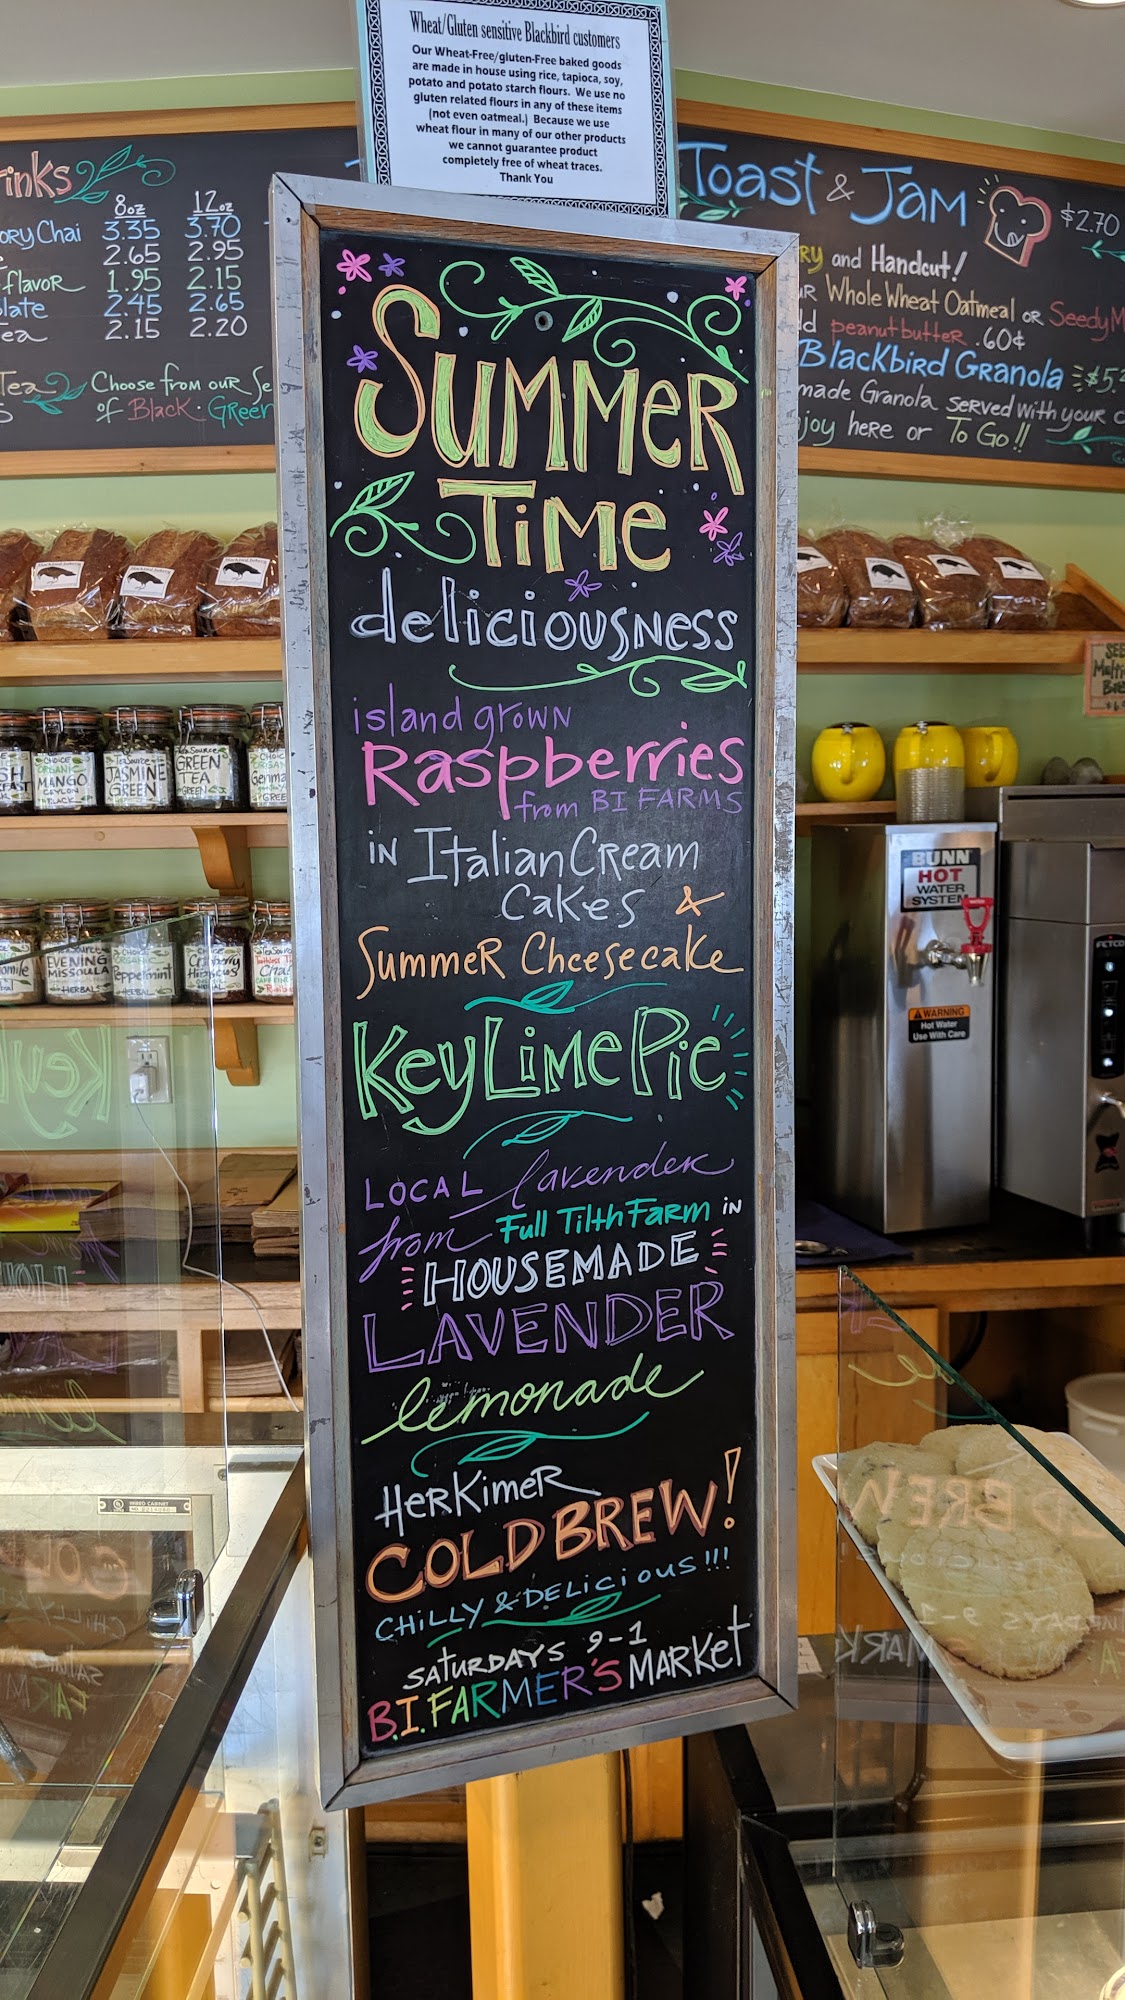 Wheat/Gluten sensitive Blackbird customers
Our Wheat-Free/gluten-Free baked goods
are made in house using rice, tapioca, soy,
potato and potato starch flours. We use no
gluten related flours in any of these items
(not even oatmeal.) Because we use
wheat flour in many of our other products
we cannot guarantee product
completely free of wheat traces.
Thank You
8oz 12oz
Chai 3.35 3.70
2.65 2.95
flavor 1.95 2.15
2.45 2.65
Tea 2.15 2.20
Tea Choose from our
of Black · Green
Toast & Jam $2.70
and Handcut!
Whole Wheat Oatmeal or Seedy
peanut butter .60¢
Blackbird Granola
Granola served with your
here or To Go!!
Summer
Time
deliciousness
island grown
Raspberries
from BI FARMS
in Italian Cream
Cakes &
Summer Cheesecake
Key Lime Pie
LOCAL lavender
from Full Tilth Farm in
HOUSEMADE
LAVENDER
lemonade
HerKimer
COLD BREW!
CHILLY & DELICIOUS!!!
SATURDAYS 9-1
B.I. FARMER'S MARKET
CHOICE
ORGANIC
MANGO
CEYLON
BLACK
TeaSource
JASMINE
GREEN
TeaSource
GREEN
TEA
GREEN
CHOICE
GREEN
EVENING
MISSOULA
HERBAL
Peppermint
HERBAL
Cranberry
Hibiscus
HERBAL
Chai
BUNN
HOT
WATER
SYSTEM
WARNING
Hot Water
Use With Care
FETCO